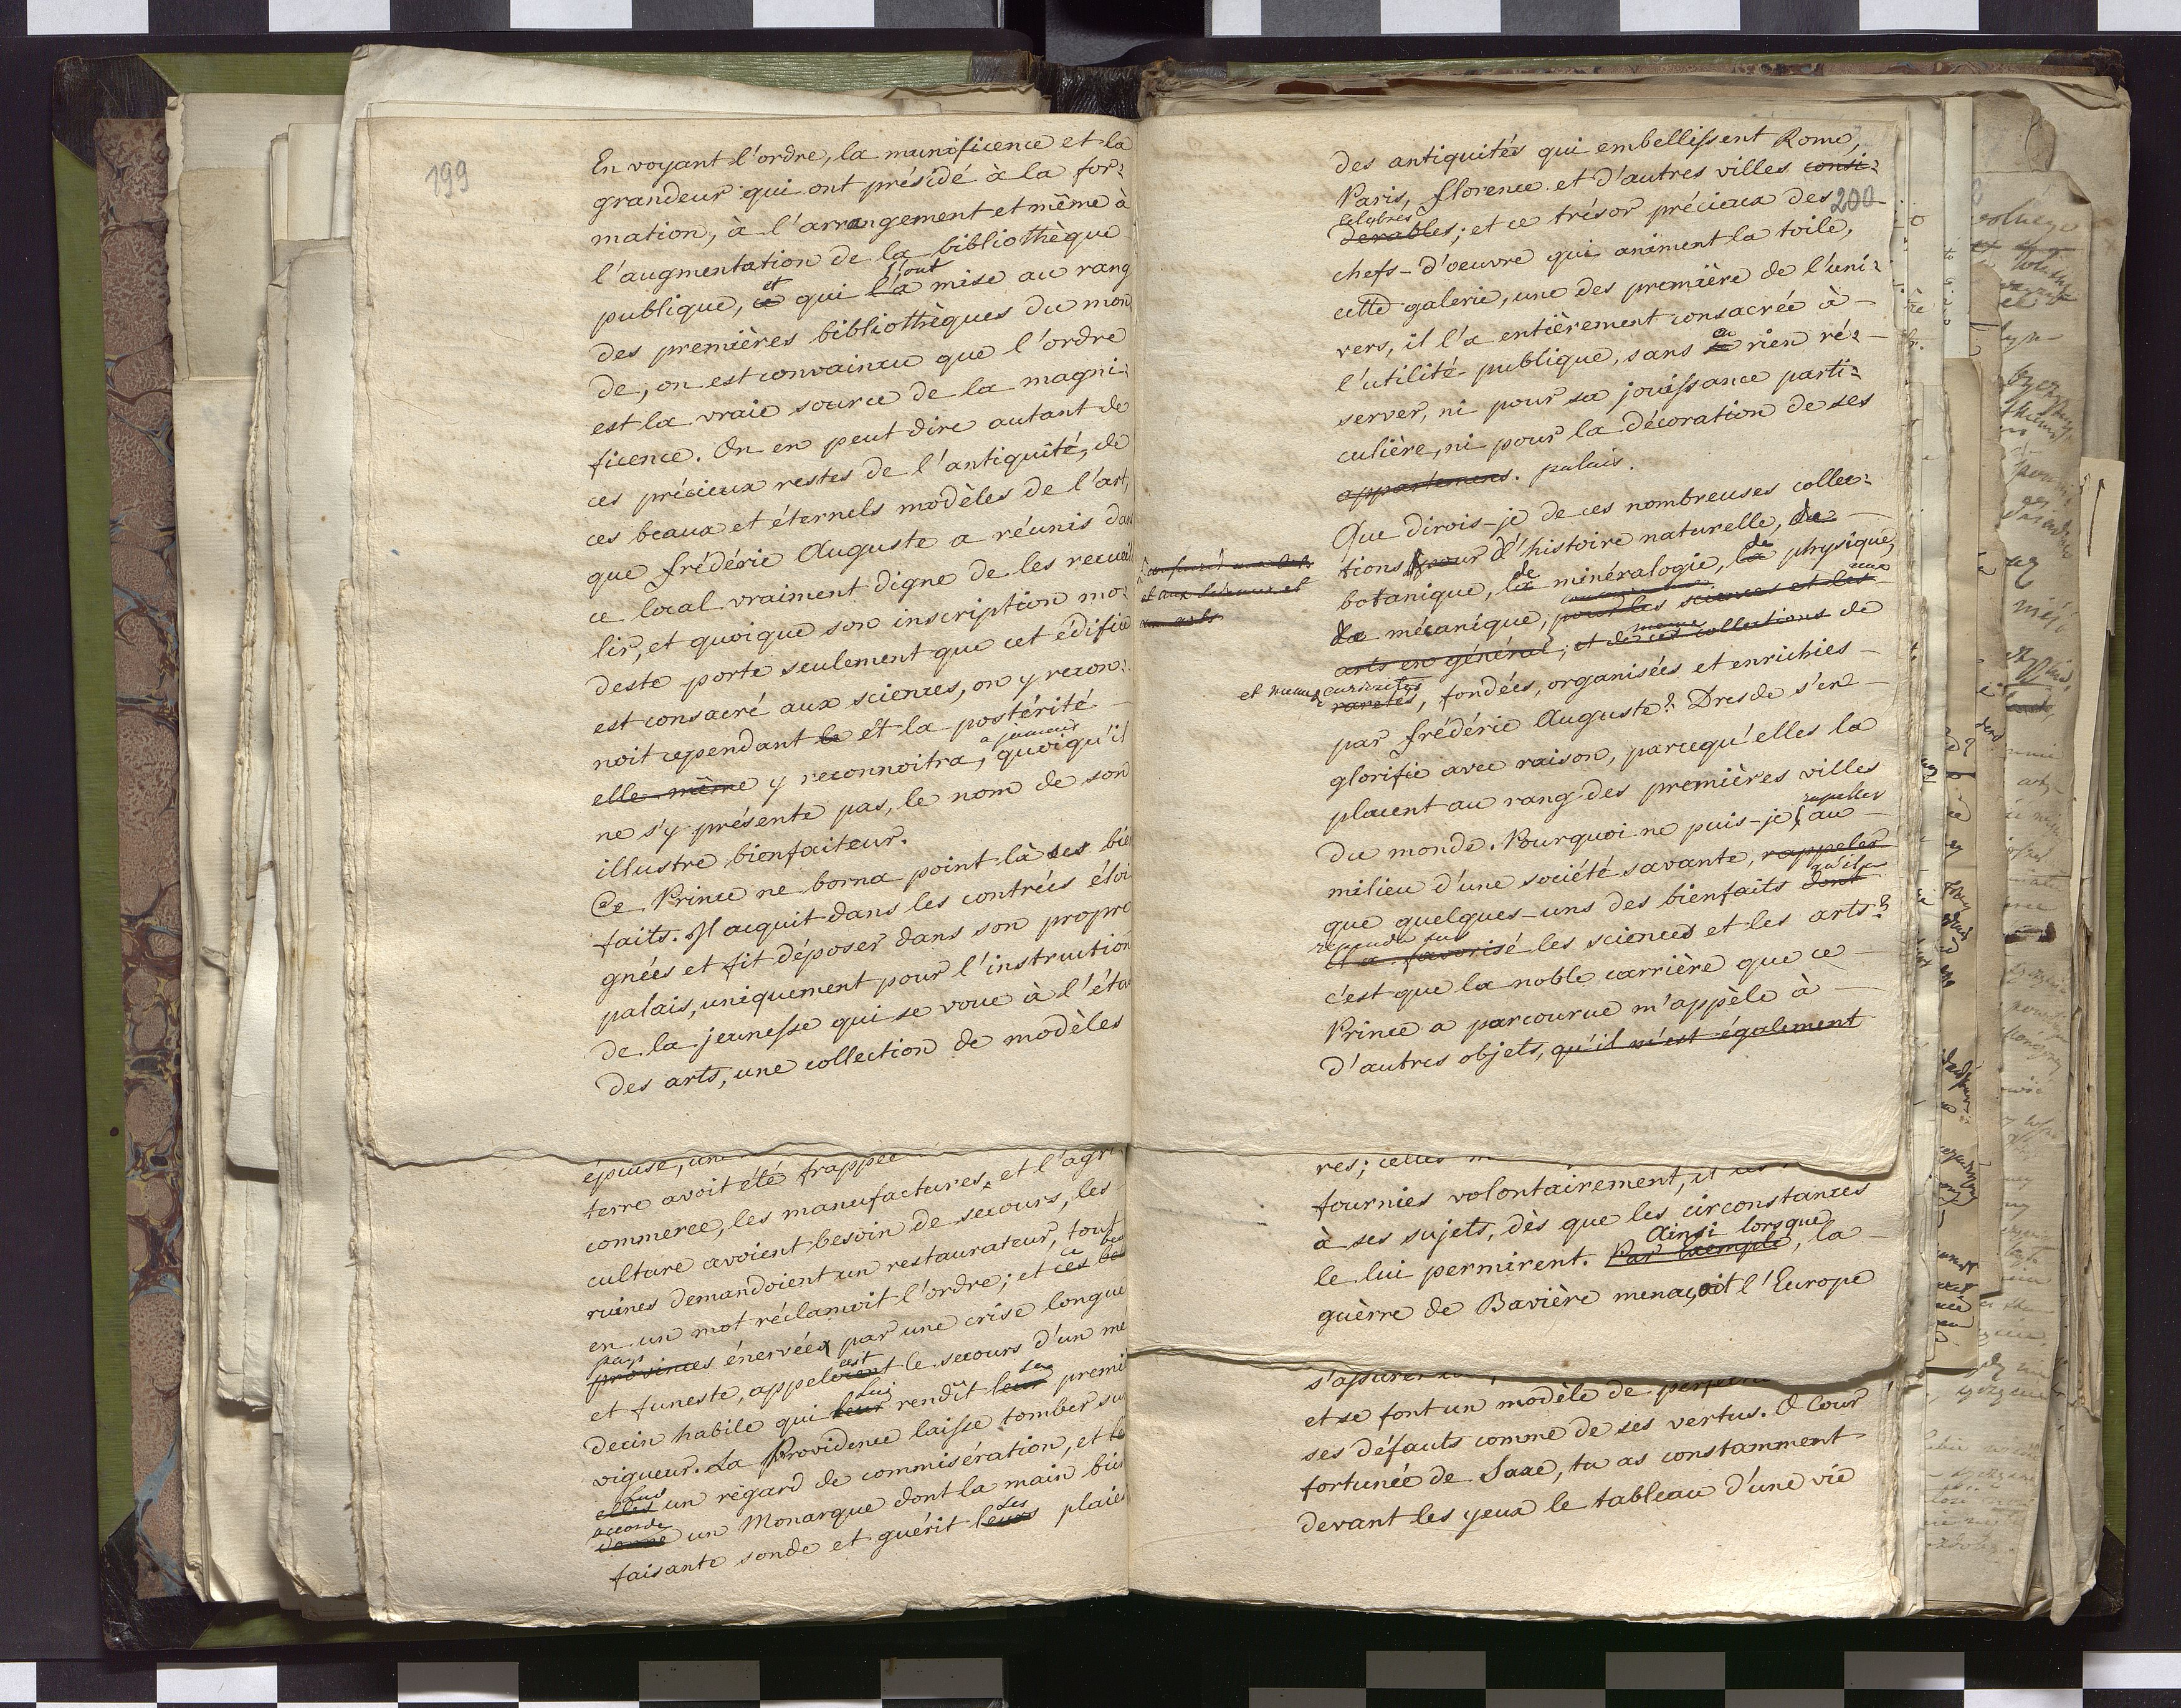 199
En voyant l'ordre, la munificence et la
grandeur qui ont présidé à la for-
mation, à l'arrangement et même à
l'augmentation de la bibliothèque
et l'ont
publique, ce qui l'a mise au rang
des premières bibliothèques du mon
de, on est convaincu que l'ordre
est la vraie source de la magni-
ficence. On en peut dire autant de
ces précieux restes de l'antiquité, de
ces beaux et éternels modèles de l'art,
que frédéric Auguste a réunis dan
ce local vraiment digne de les recueil
lir, et quoique son inscription mo-
deste porte seulement que cet édifice
est consacré aux sciences, on y recon-
noit cependant et la postérité
a jamais
elle même y reconnoitra, quoiqu'il
ne s'y présente pas, le nom de son
illustre bienfaiteur.
Ce Prince ne borna point là ses bien
faits. Il acquit dans les contrées éloi
gnées et fit déposer dans son propre
palais, uniquement pour l'instruction
de la jeunesse qui se voue à l'étu
des arts, une collection de modèles
épuisé, une
terre avoit été frappée
commerce, les manufactures, et l'agri
culture avoient besoin de secours, les
ruines demandoient un restaurateur, tout
en un mot réclamoit l'ordre; et ces
pays
provinces énervées par une crise longue
et funeste, appeloient le secours d'un me
lui sa
decin habile qui leur rendît leur premi
vigueur. La Providence laisse tomber su
lui
elles un régard de commisération, et
accorde
donne un Monarque dont la main bien
les
faisante sonde et guérit leurs plaies
des antiquités qui embellissent Rome,
Paris, florence et d'autres villes consi-
200
celebres
derables; et ce trésor précieux des
chefs-d'oeuvre qui animent la toile,
cette galerie, une des première de l'uni-
vers, il l'a entièrement consacrée à
l'utilité publique, sans en rien ré-
server, ni pour sa jouissance parti-
culière, ni pour la décoration de ses
appartemens. palais.
Que dirois-je de ces nombreuses collec-
tions pour d'histoire naturelle, de
de de
botanique, la minéralogie, la physique,
de mécanique, pour les sciences et les
arts en général, et de ces collections de
et aux sciences et
aux arts
et meme curiosites
raretés, fondées, organisées et enrichies
par frédéric Auguste? Dresde s'en
glorifie avec raison, parcequ'elles la
placent au rang des premières villes
rapeller
du monde. Pourquoi ne puis-je au
milieu d'une société savante, rappeler
qu'il a
que quelques-uns des bienfaits dont
repandu sur
il a favorisé les sciences et les arts?
c'est que la noble carrière que ce
Prince a parcourue m'appèle à
d'autres objets, qu'il m'est également
res; celles
fournies volontairement, il les
à ses sujets, dès que les circonstances
Ainsi lorsque
le lui permirent. Par exemple, la
guèrre de Bavière menaçoit l'Europe
s'assurer
et se font un modèle de
ses défauts comme de ses vertus. O Cour
fortunée de Saxe, tu as constamment
devant les yeux le tableau d'une vie